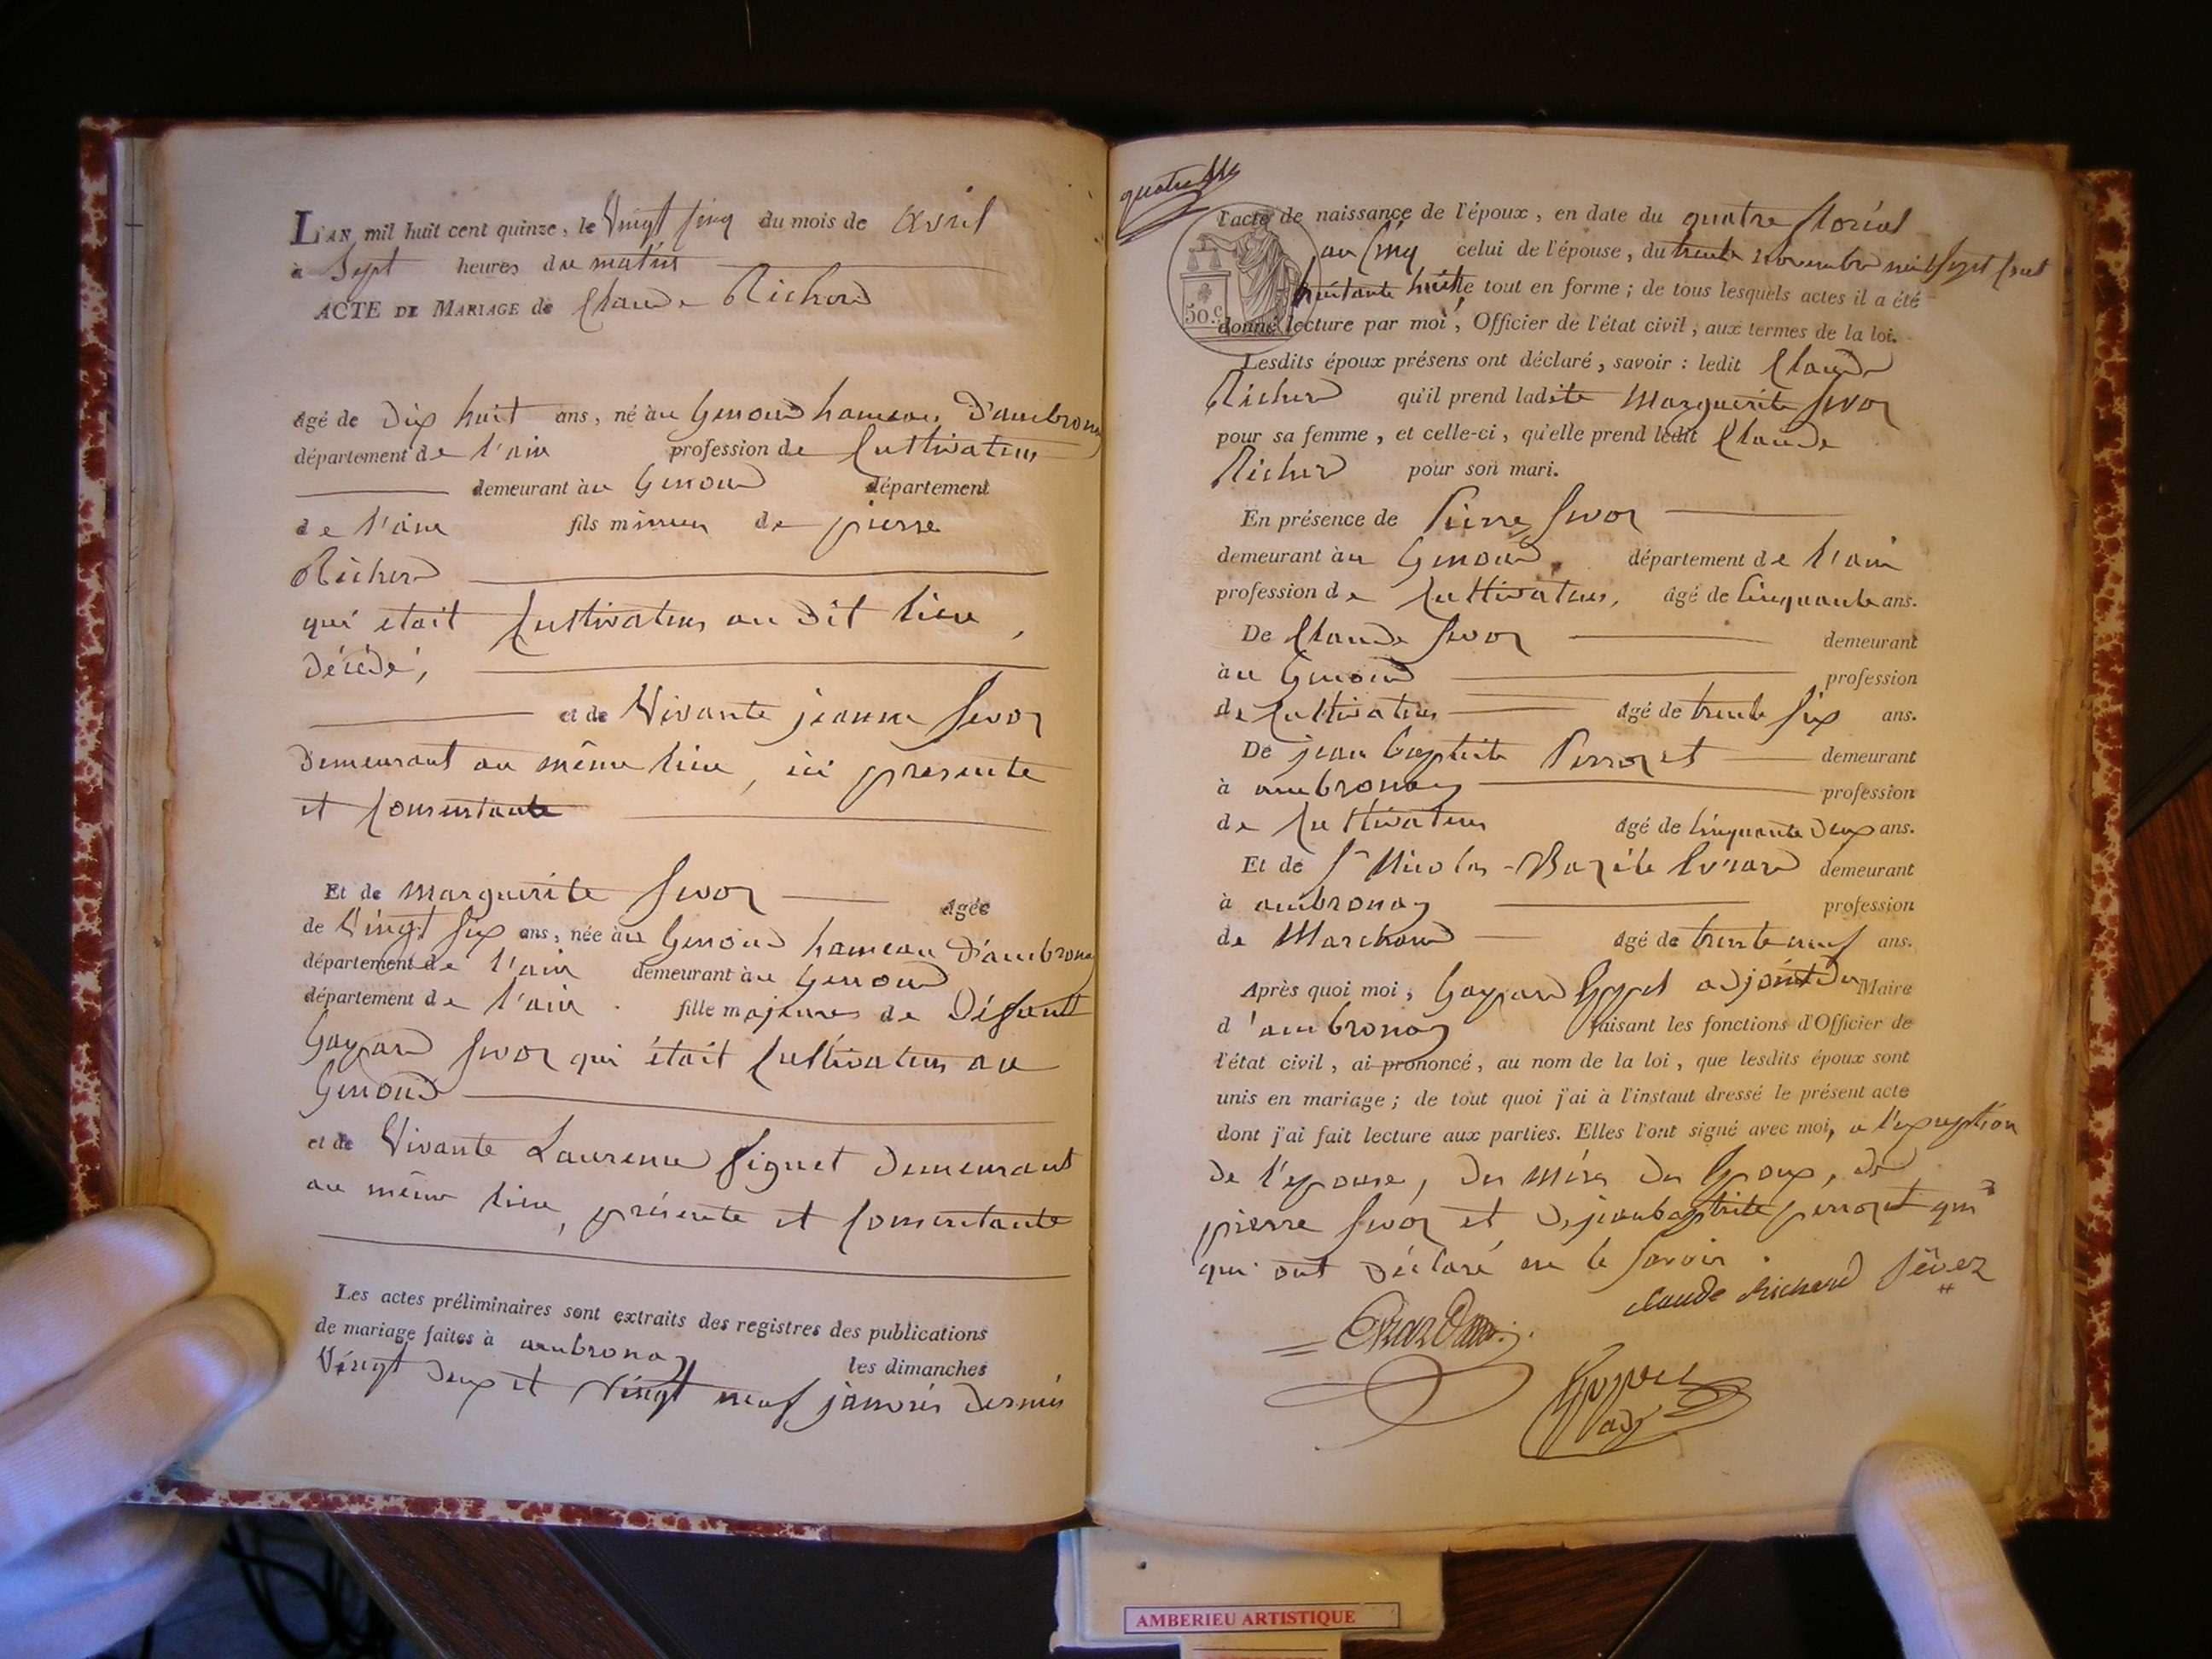 L'AN mil huit cent quinze, le Vingt Cinq du mois de avril
à Sept heures du matin
ACTE DE MARIAGE de Claude Richerd
âgé de Dix huit ans, né au Genoud hameau D'ambronay
département de l'ain profession de Cultivateur
demeurant au Genoud département
de l'ain fils mineur de pierre
Richerd
qui etait Cultivateur au Dit lieu,
Décédé,
et de Vivante jeanne Sevoz
Demeurant au même lieu, ici presente
et Consentante
Et de Marguerite Sevoz âgée
de Vingt Six ans, née au Genoud hameau D'ambronay
département de l'ain demeurant au Genoud
département de l'ain fille majeure de Défunt
Gaspard Sevoz qui était Cultivateur au
Genoud
et de Vivante Laurence Signet Demeurant
au même lieu, présente et Consentante
Les actes préliminaires sont extraits des registres des publications
de mariage faites à ambronay les dimanches
Vingt Deux et Vingt neuf janvier Dernier
quatre
l'acte de naissance de l'époux, en date du quatre floréal
an Cinq celui de l'épouse, du trente Novembre mil Sept Cent
huitante huit le tout en forme ; de tous lesquels actes il a été
50.c donné lecture par moi, Officier de l'état civil, aux termes de la loi.
Lesdits époux présens ont déclaré, savoir : ledit Claude
Richerd qu'il prend ladite Marguerite Sevoz
pour sa femme, et celle-ci, qu'elle prend ledit Claude
Richerd pour son mari.
En présence de Pierre Sevoz
demeurant au Genoud, département de l'ain
profession de Cultivateur, âgé de Cinquante ans.
De Claude Sevoz demeurant
au Genoud profession
de Cultivateur âgé de trente Six ans.
De jean baptiste Perrozet demeurant
à ambronay profession
de Cultivateur âgé de Cinquante Deux ans.
Et de Sr Nicolas-Bazile Evrard demeurant
à ambronay profession
de Marchand âgé de trente neuf ans.
Après quoi moi, Gaspard Goppel adjoint Du Maire
d'ambronay faisant les fonctions d'Officier de
l'état civil, ai prononcé, au nom de la loi, que lesdits époux sont
unis en mariage ; de tout quoi j'ai à l'instant dressé le présent acte
dont j'ai fait lecture aux parties. Elles l'ont signé avec moi, a l'exception
de l'epouse, Des mères Des Epoux, de
pierre Sevoz et De jeanbaptiste perrozet qui
qui ont Déclaré ne le Savoir.
claude Richerd Sévoz
Evrard
adj
AMBERIEU ARTISTIQUE